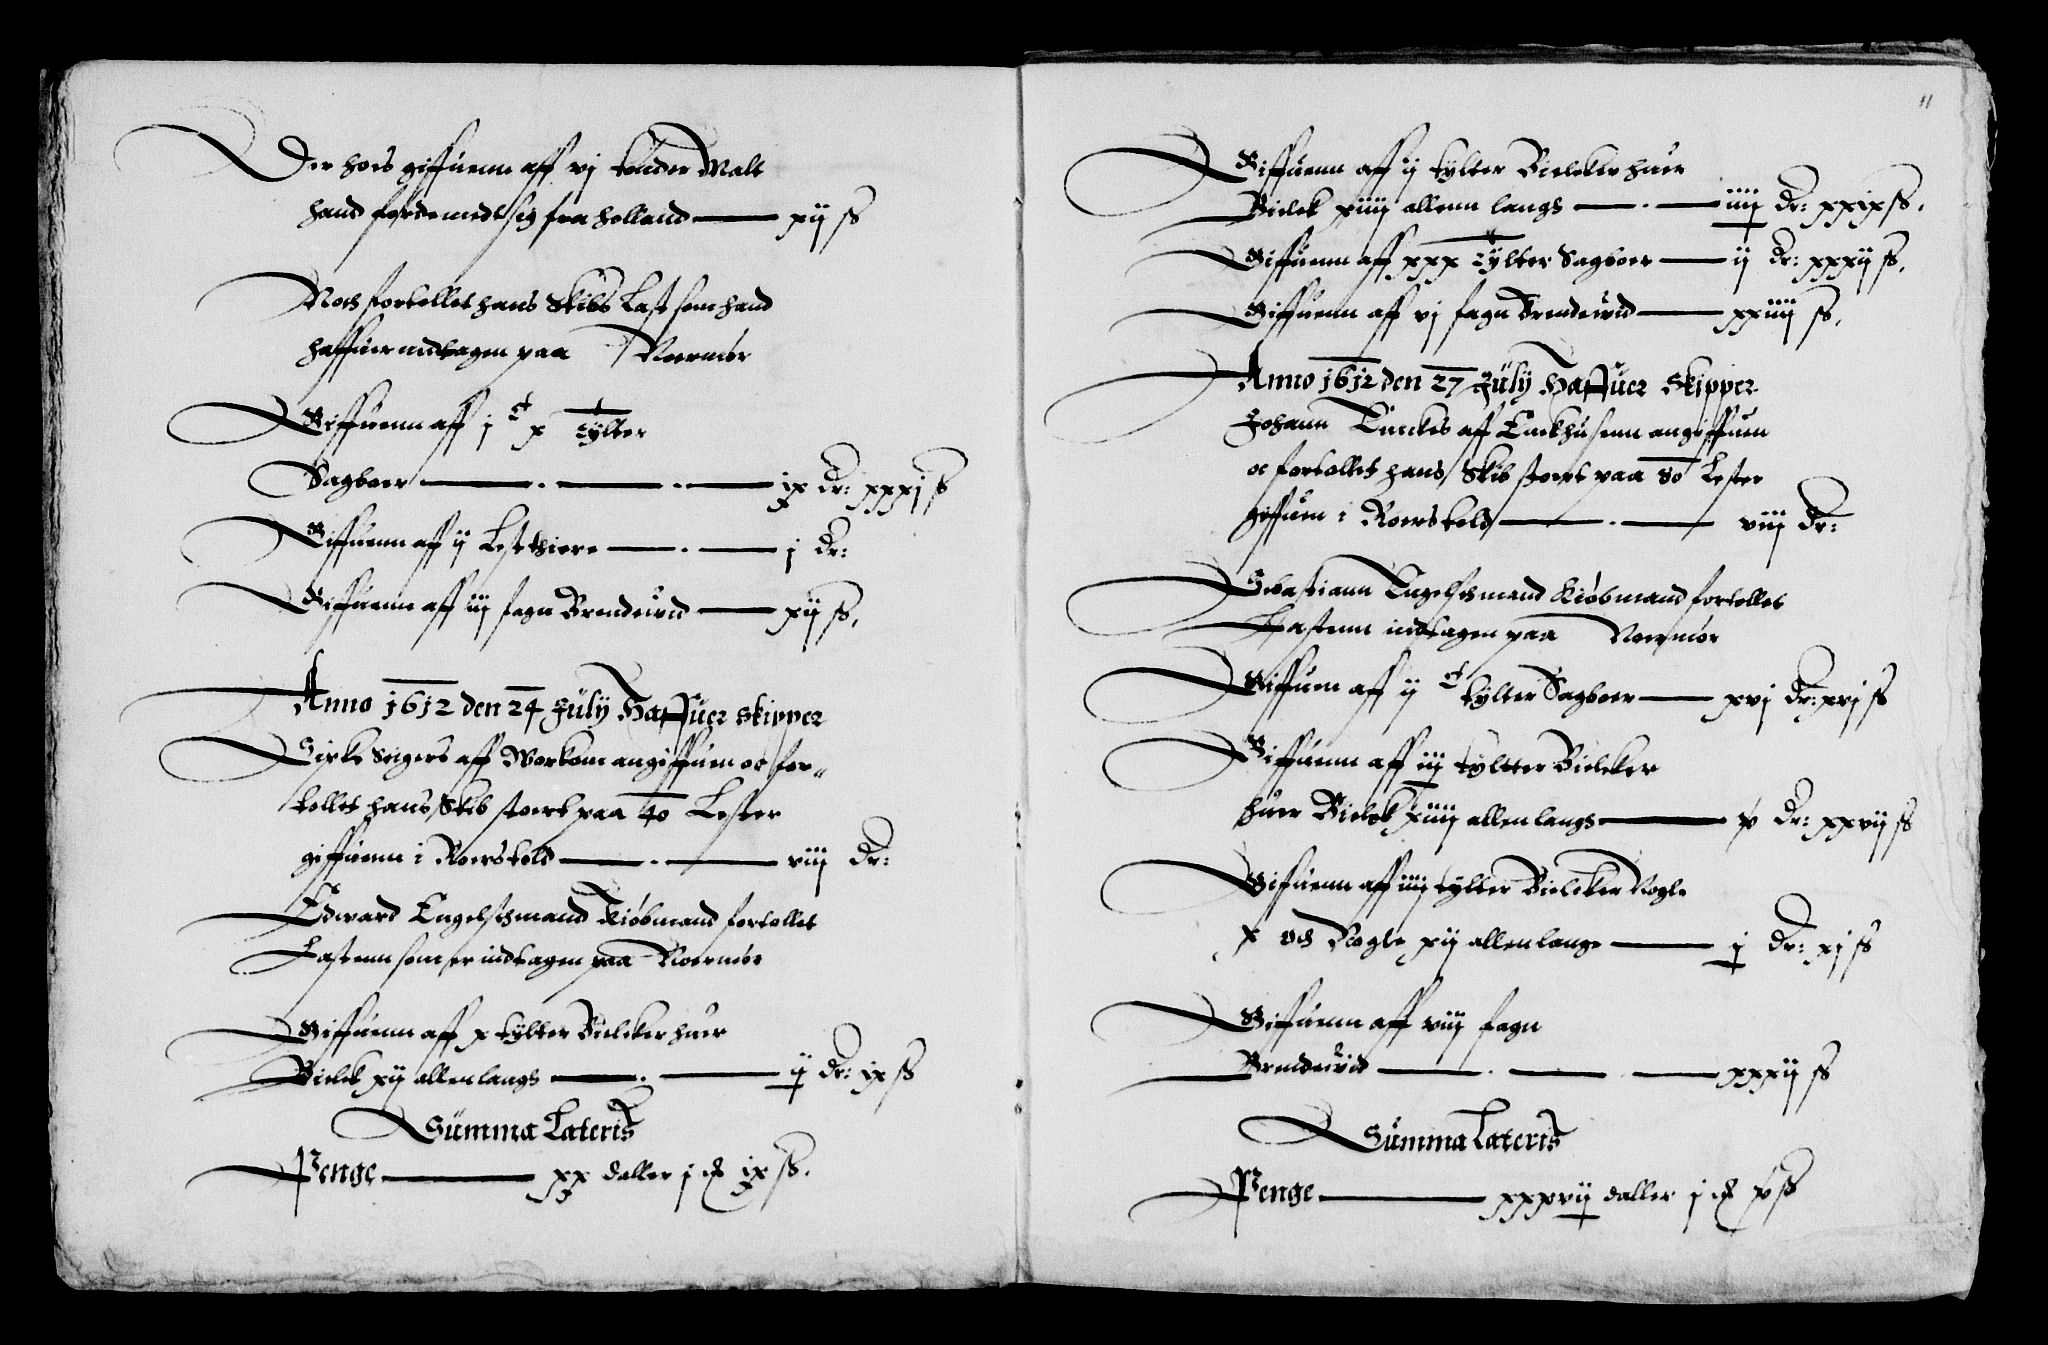 Der hoes giffuenn aff vj tønder Malt
hand førde medt sig fra Holland —— xij ß
Noch fortollet hans Skibs Last som hand
haffuer indtagen paa Noermør
Giffuenn aff j c x tylter
Sagboer —— · —— · —— ix dr: xxxj ß
Giffuenn aff ij Lest thiere —— · —— j dr:
Giffuenn aff iij fagn Brendeuid —— xij ß.
Anno 1612 den 24 July Haffuer skipper
Sixke Seigers aff Workom angiffuen oc for-
tollet hans Skib stoert paa 40 Lester
giffuenn i Roerstold —— · —— viij dr:
Edward Engelschmand Kiøbmand fortollet
Lastenn som er indtagen paa Noermør
Giffuenn aff x tylter Bielcker huer
Bielck xij allen langs —— · —— ij dr: ix ß
Summa Lateris
Penge —— xx daller j ort ix ß.
11
Giffuenn aff ij tylter Bielcker huer
Bielck xiiij allenn langs —— · —— iiij dr: xxix ß.
Giffuenn aff xxx tylter Sagboer —— ij dr: xxxij ß.
Giffuenn aff vj fagn Brendeuid —— xxiiij ß.
Anno 1612 den 27 July Haffuer Skipper
Johann Luickes aff Enckhusenn angiffuen
oc fortollet hans Skib stoert paa 80 Lester
giffuen i Roerstold —— · —— viij dr:
Sebastiann Engelschmand Kiøbmand fortollet
Lastenn indtagen paa Noermør
Giffuen aff ij c tylter Sagboer —— xvj dr: xvj ß
Giffuenn aff iij tyltter Bielcker
huer Bielck xiiij allen langs —— x dr: xxvij ß
Gifuenn aff iiij tylter Bielcker Nogle
x och Nogle xij allen lange —— j dr: xj ß
Giffuenn aff viij fagn
Brendeuid —— · —— · —— xxxij ß
Summa Lateris
Penge —— xxxvij daller j ort x ß